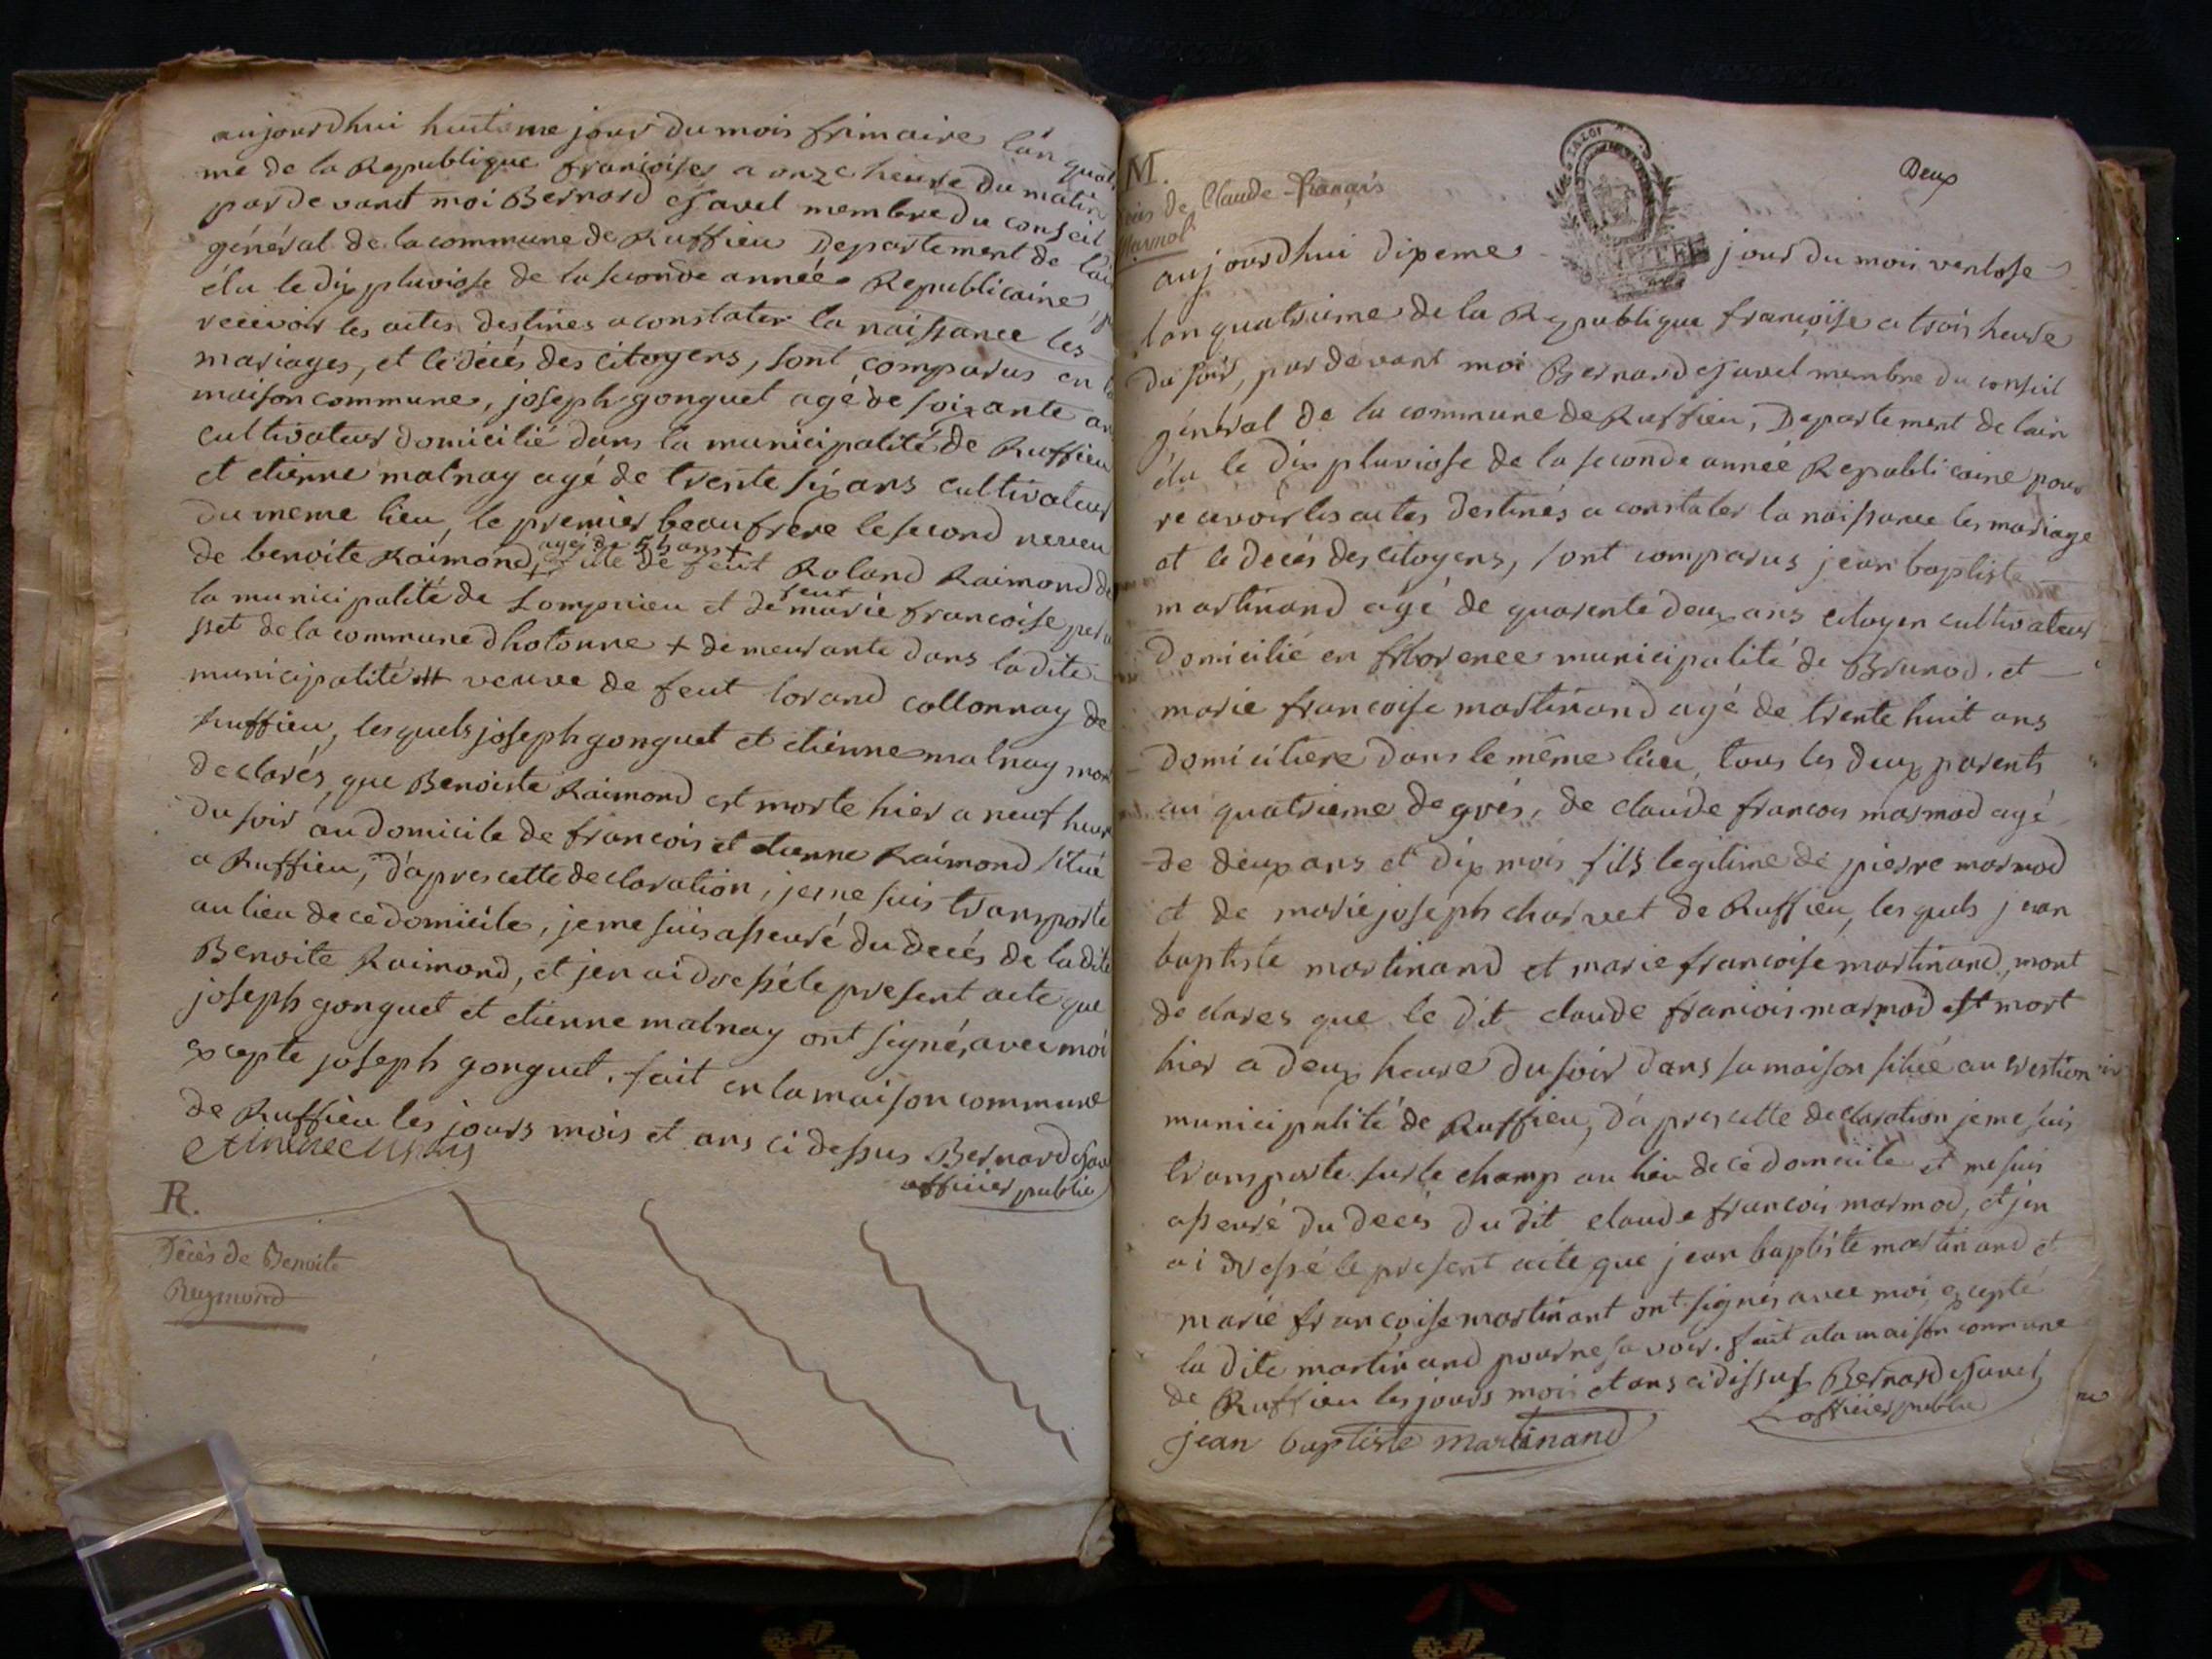 aujourdhui huitieme jour du mois frimaire lan quat
me de la Republique françoises a onze heure du matin
par devant moi Bernard Javel membre du conseil
général de la commune de Ruffieu Departement de lain
élu le dix pluviose de la seconde année Republicaine
recevoir les actes destinés a constater la naissance les
mariages, et le décés des citoyens, sont comparus en la
maison commune, joseph gonguet agé de soixante an
cultivateur domicilié dans la municipalité de Ruffieu
et etienne malnay agé de trente six ans cultivateur
du meme lieu, le premier beau frere le second neveu
agé de 54 ans +
de benoite Raimond, fille de feut Roland Raimond de
feut
la municipalité de Sompnieu et de marie francoise per
sset de la commune dhotonne + demeurante dans la dite
municipalité veuve de feut lorand collonnay de
Ruffieu, lesquels joseph gonguet et etienne malnay mon
declarés, que Benoiste Raimond est morte hier a neuf heur
du soir au domicile de francois et etienne Raimond situé
a Ruffieu, d'apres cette declaration, je me suis transporté
au lieu de ce domicile, je me suis asseuré du decés de la dite
Benoite Raimond, et jen ai dressé le present acte que
joseph gonguet et etienne malnay ont signé, avec moi
excepte joseph gonguet. fait en la maison commune
de Ruffieu les jours mois et ans ci dessus Bernard Jav
officier public
R.
Décès de Benoite
Raymond
M.
de Claude-français
Marmod
Deux
aujourdhui dixeme jour du mois ventose
lan quatrieme de la Republique françoise a trois heure
du soir, par devant moi Bernard Javel membre du conseil
général de la commune de Ruffieu, Departement de lain
élu le dix pluviose de la seconde année Republicaine pour
recevoir les actes destinés a constater la naissance les mariage
et le decés des citoyens, sont comparus jean baptiste
martinand agé de quarente deux ans citoyen cultivateur
domicilié en florence municipalité de Brunod. et
marie francoise martinand agé de trente huit ans
domiciliere dans le même lieu, tous les deux parents
au quatrieme degrés, de claude francois marmod agé
de deux ans et dix mois fils legitime de pierre marmod
et de marie joseph charvet de Ruffieu, lesquels jean
baptiste martinand et marie francoise martinand, mont
declares que le dit claude francois marmod est mort
hier a deux heure du soir dans sa maison situé au
municipalité de Ruffieu, d'apres cette declaration je me suis
transporte sur le champ au lieu de ce domicile et me suis
asseuré du decés du dit claude francois marmod, et jen
ai dressé le present acte que jean baptiste martinand et
marie francoise martinant ont signés avec moi excepté
la dite martinand pour ne savoir. fait a la maison commune
de Ruffieu les jours mois et ans ci dissus Bernard Javel
officier public
jean baptiste martinand